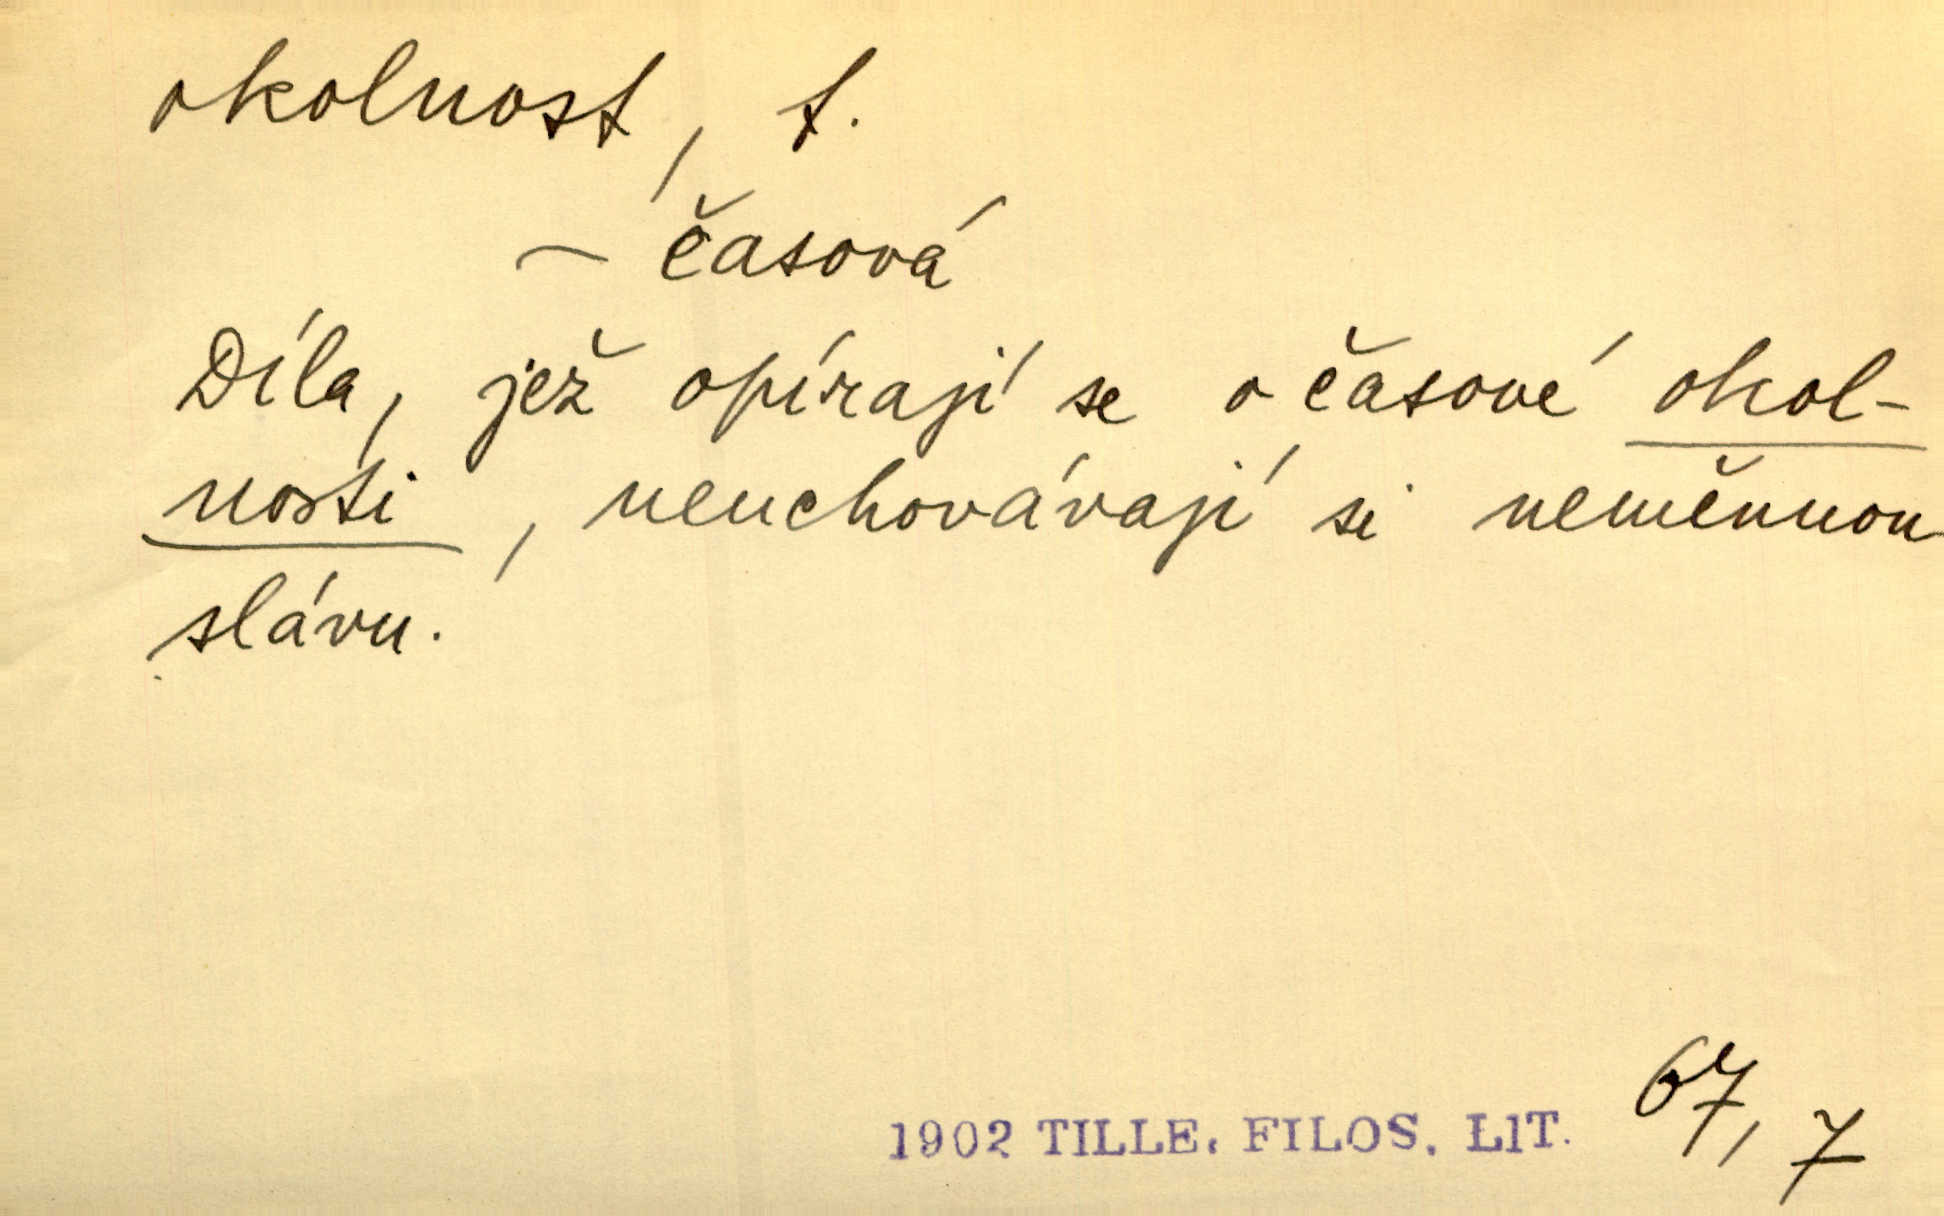 okolnost, f.
– časová
Díla, jež opírají se o časové okol-
nosti, neuchovávají si neměnnou
slávu.
67, 7
1902 TILLE, FILOS. LIT.